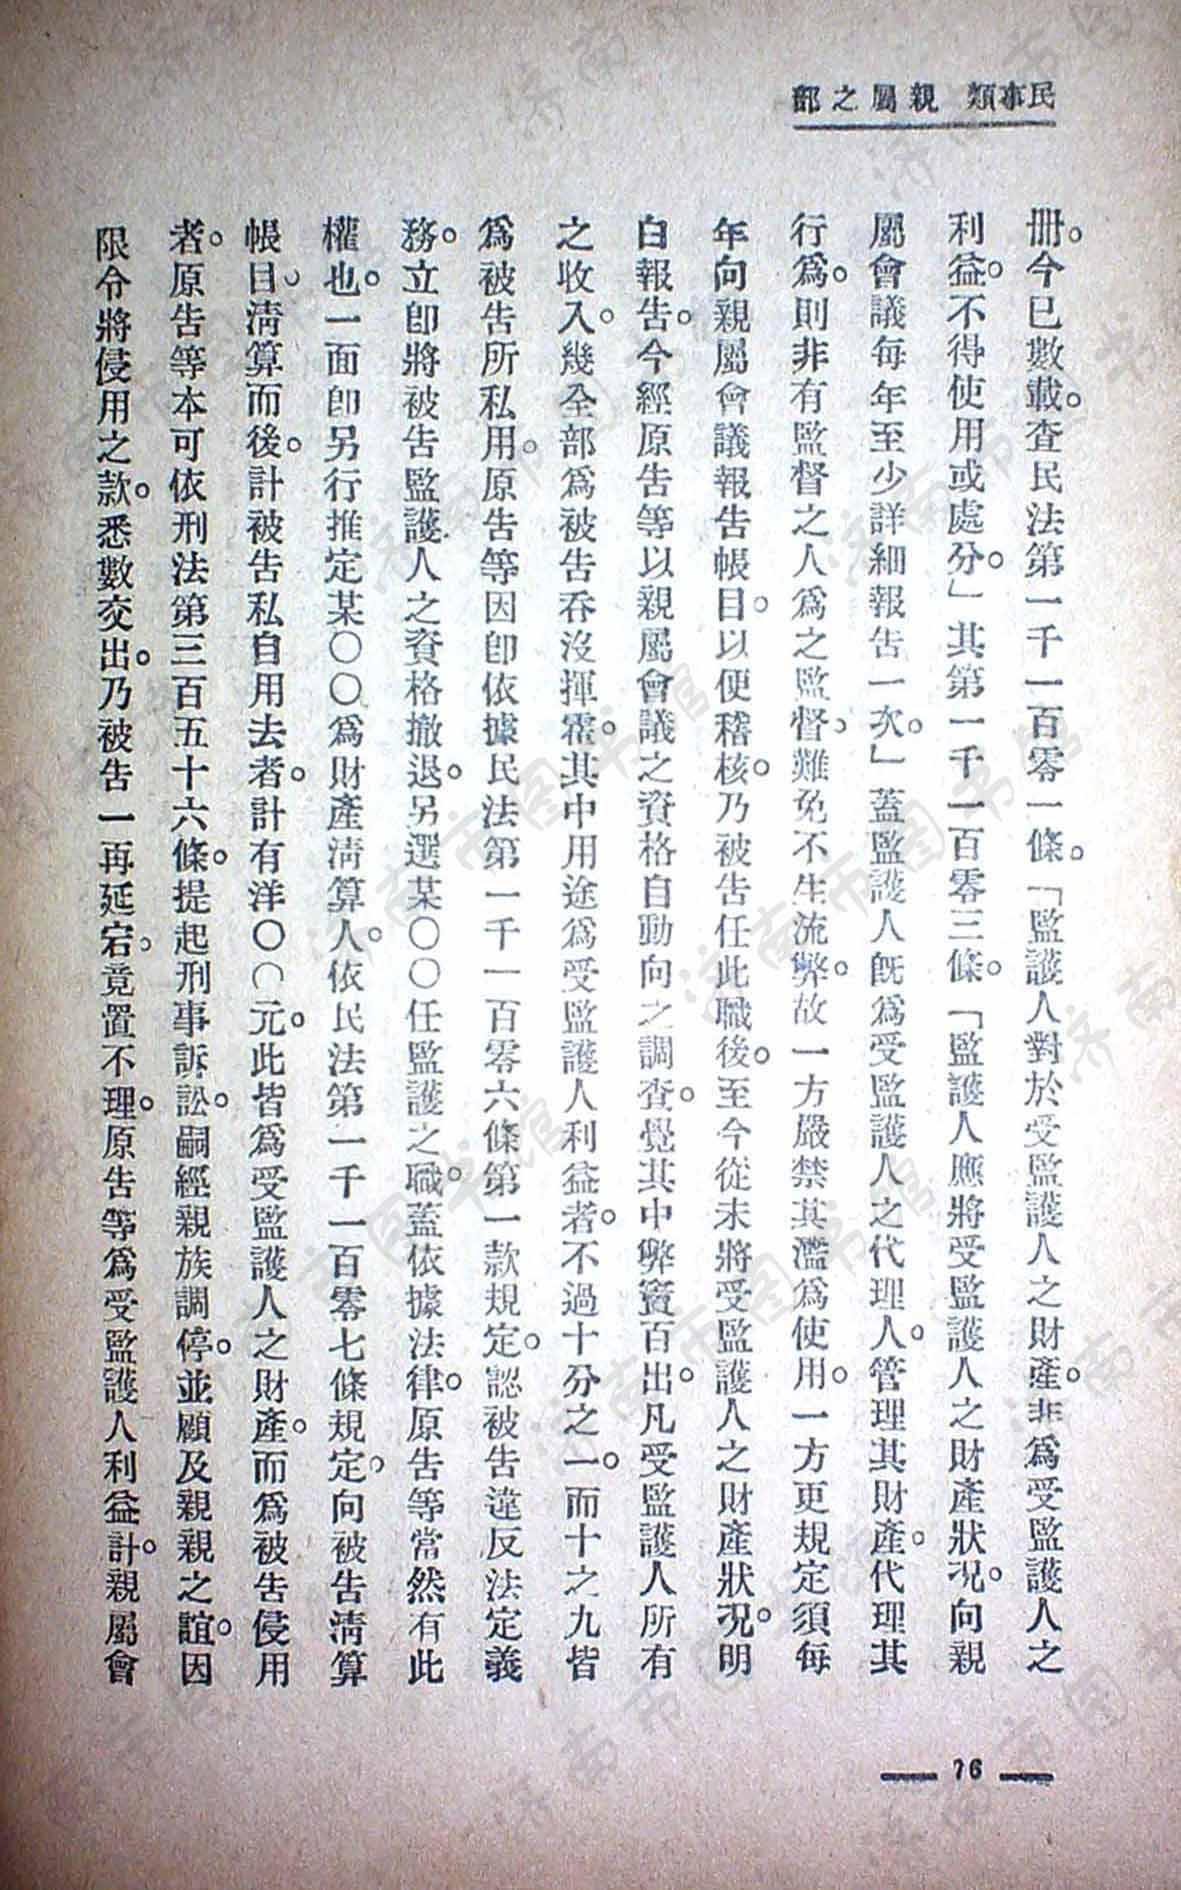 民事類 親屬之部
册。今已數載。查民法第一千一百零一條。「監護人對於受監護人之財產。非爲受監護人之
利益。不得使用或處分。」其第一千一百零三條。「監護人應將受監護人之財產狀况。向親
屬會議每年至少詳細報告一次。」蓋監護人既爲受監護人之代理人。管理其財產。代理其
行爲。則非有監督之人爲之監督。難免不生流弊。故一方嚴禁其濫爲使用。一方更規定須每
年向親屬會議報告帳目。以便稽核。乃被告任此職後。至今從未將受監護人之財產狀况。明
白報告。今經原告等以親屬會議之資格自動向之調查。覺其中弊竇百出。凡受監護人所有
之收入。幾全部爲被告吞沒揮霍。其中用途爲受監護人利益者。不過十分之一。而十之九皆
爲被告所私用。原告等因卽依據民法第一千一百零六條第一款規定。認被告違反法定義
務。立卽將被告監護人之資格撤退。另選某〇〇任監護之職。蓋依據法律。原告等當然有此
權也。一面卽另行推定某〇〇爲財產淸算人。依民法第一千一百零七條規定。向被告淸算
帳目。淸算而後。計被告私自用去者。計有洋〇〇元。此皆爲受監護人之財產。而爲被告侵用
者。原告等本可依刑法第三百五十六條。提起刑事訴訟。嗣經親族調停。並顧及親親之誼。因
限令將侵用之款。悉數交出。乃被告一再延宕。竟置不理。原告等爲受監護人利益計。親屬會
76
济南市图书馆